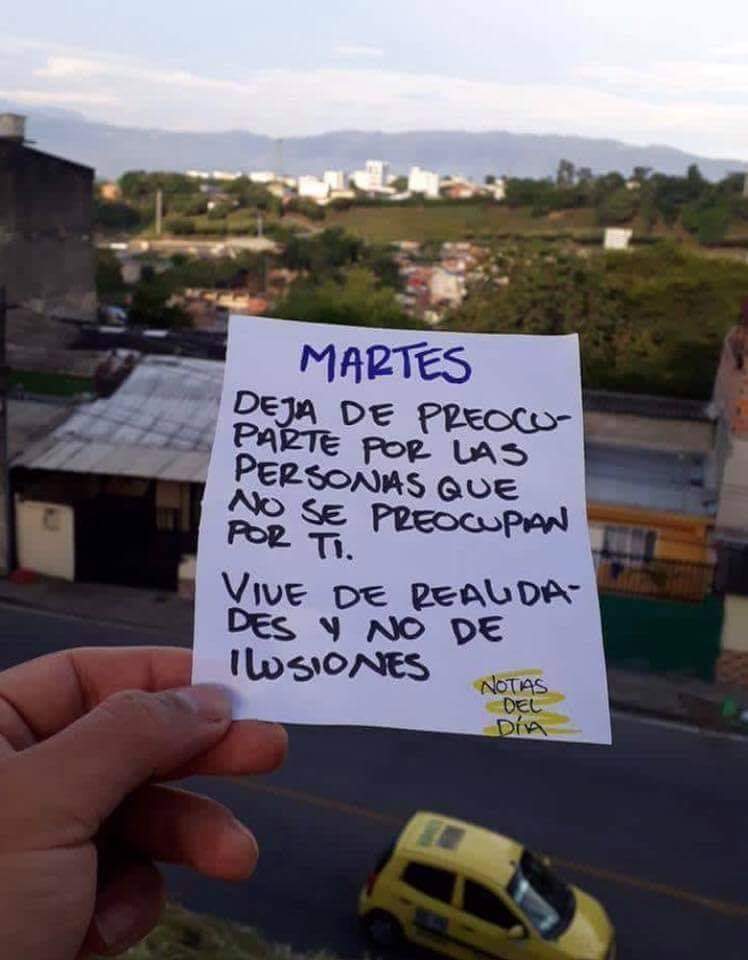 MARTES
DEJA DE PREOCU-
PARTE POR LAS
PERSONAS QUE
NO SE PREOCUPAN
POR TI.
VIVE DE REALIDA-
DES Y NO DE
ILUSIONES
NOTAS
DEL
DÍA